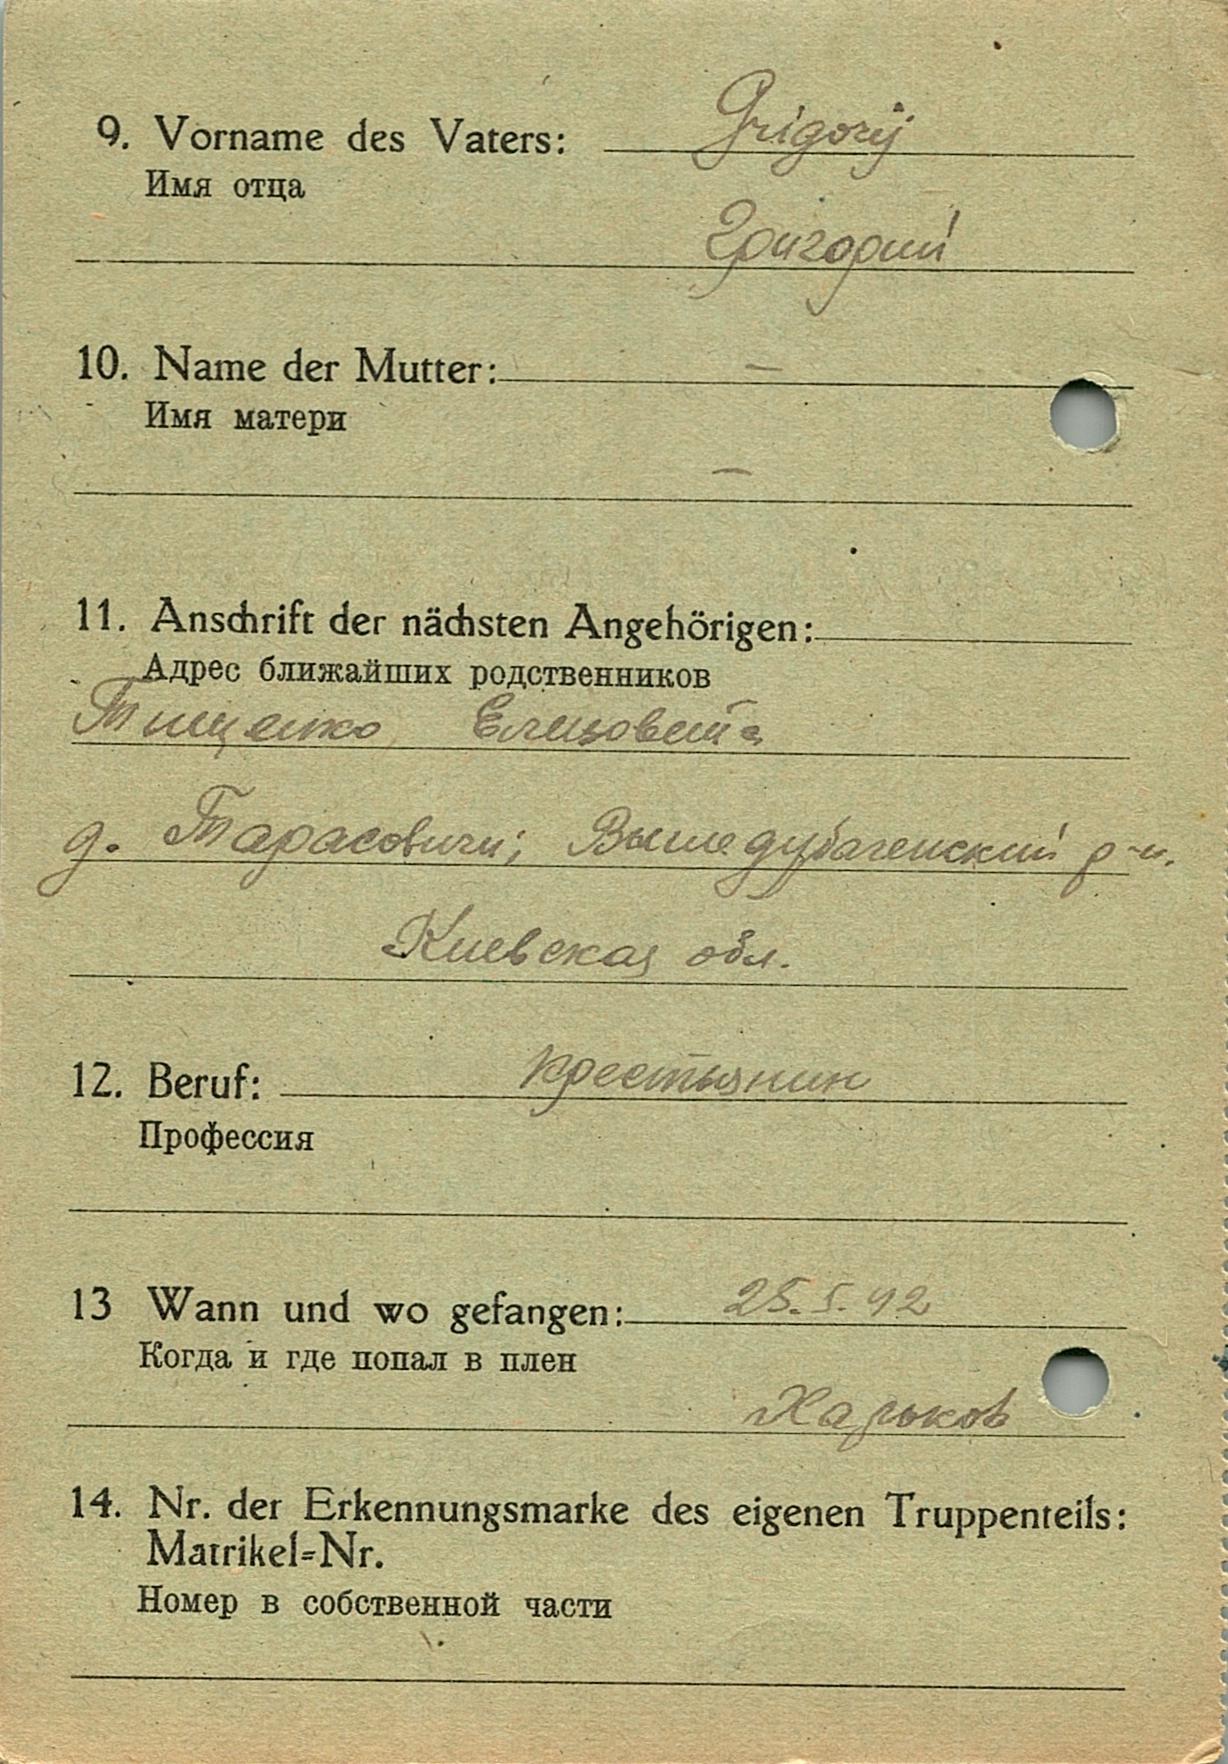 9. Vorname des Vaters: Grigorij
Имя отца
Григорий
10. Name der Mutter: —
Имя матери
—
11. Anschrift der nächsten Angehörigen:
Адрес ближайших родственников
Тищенко Елизовета
д. Тарасовичи; Вышедубагенский р-н.
Киевская обл.
12. Beruf: крестьянин
Профессия
13 Wann und wo gefangen: 25.5.42
Когда и где попал в плен
Харьков
14. Nr. der Erkennungsmarke des eigenen Truppenteils:
Matrikel=Nr.
Номер в собственной части